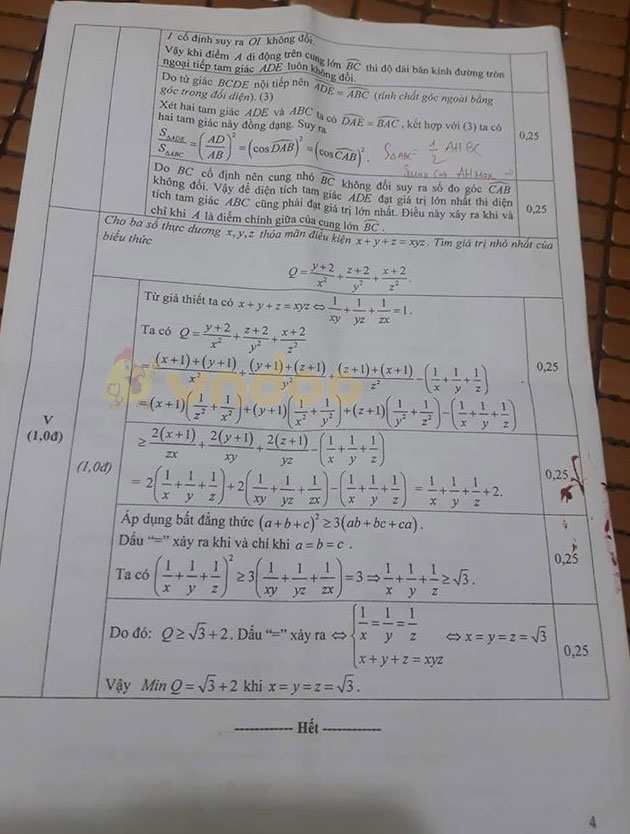 I cố định suy ra OI không đổi.
Vậy khi điểm A di động trên cung lớn BC thì độ dài bán kính đường tròn
ngoại tiếp tam giác ADE luôn không đổi.
Do tứ giác BCDE nội tiếp nên \widehat{ADE} = \widehat{ABC} (tính chất góc ngoài bằng
góc trong đối diện). (3)
Xét hai tam giác ADE và ABC ta có \widehat{DAE} = \widehat{BAC}, kết hợp với (3) ta có
hai tam giác này đồng dạng. Suy ra
S_{ΔADE}/S_{ΔABC} = (AD/AB)^2 = (cos \widehat{DAB})^2 = (cos \widehat{CAB})^2. S_{ΔABC} = 1/2 AH BC
AH Max
0,25
Do BC cố định nên cung nhỏ BC không đổi suy ra số đo góc \widehat{CAB}
không đổi. Vậy để diện tích tam giác ADE đạt giá trị lớn nhất thì diện
tích tam giác ABC cũng phải đạt giá trị lớn nhất. Điều này xảy ra khi và
chỉ khi A là điểm chính giữa của cung lớn BC.
0,25
Cho ba số thực dương x, y, z thỏa mãn điều kiện x + y + z = xyz. Tìm giá trị nhỏ nhất của
biểu thức
Q = (y+2)/x² + (z+2)/y² + (x+2)/z².
V
(1,0đ)
(1,0đ)
Từ giả thiết ta có x + y + z = xyz ⇔ 1/xy + 1/yz + 1/zx = 1.
Ta có Q = (y+2)/x² + (z+2)/y² + (x+2)/z²
= ((x+1)+(y+1))/x² + ((y+1)+(z+1))/y² + ((z+1)+(x+1))/z² − (1/x + 1/y + 1/z)
= (x+1)(1/z² + 1/x²) + (y+1)(1/x² + 1/y²) + (z+1)(1/y² + 1/z²) − (1/x + 1/y + 1/z)
0,25
≥ 2(x+1)/zx + 2(y+1)/xy + 2(z+1)/yz − (1/x + 1/y + 1/z)
= 2(1/x + 1/y + 1/z) + 2(1/xy + 1/yz + 1/zx) − (1/x + 1/y + 1/z) = 1/x + 1/y + 1/z + 2.
0,25
Áp dụng bất đẳng thức (a + b + c)² ≥ 3(ab + bc + ca).
Dấu “=” xảy ra khi và chỉ khi a = b = c.
Ta có (1/x + 1/y + 1/z)² ≥ 3(1/xy + 1/yz + 1/zx) = 3 ⇒ 1/x + 1/y + 1/z ≥ √3.
0,25
Do đó: Q ≥ √3 + 2. Dấu “=” xảy ra ⇔ { 1/x = 1/y = 1/z
x + y + z = xyz ⇔ x = y = z = √3
0,25
Vậy Min Q = √3 + 2 khi x = y = z = √3.
------------ Hết ------------
4
vndoc